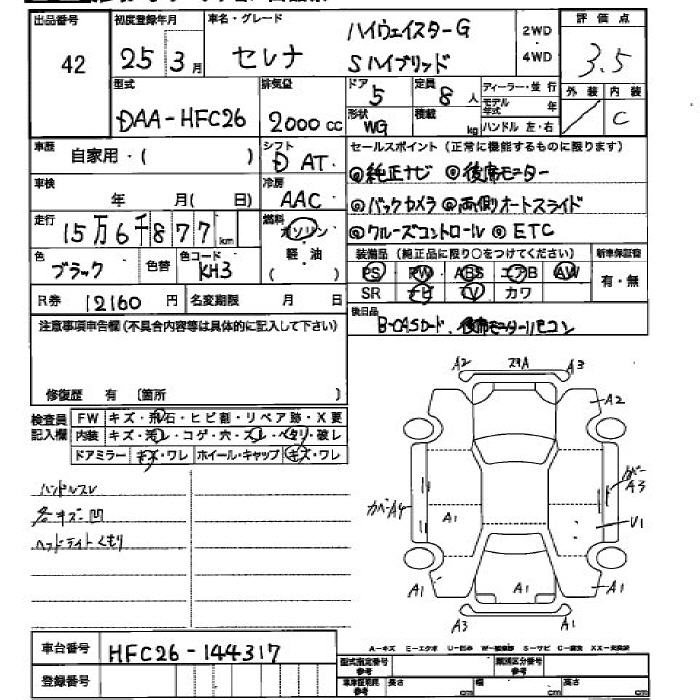 出品番号 初度登録年月 車名・グレード 評価点
42 25 3月 セレナ ハイウェイスターG 2WD 3.5
Sハイブリッド 4WD
型式 排気量 ドア 定員 ディーラー・並行 外装 内装
DAA-HFC26 2000cc 5 8人 モデル年式 年 / C
形状 積載 kg
WG ハンドル 左・右
車歴 自家用・( ) シフト D AT セールスポイント(正常に機能するものに限ります)
◎純正ナビ ◎後席モニター
車検 年 月( 日) 冷房 AAC
◎バックカメラ ◎両側オートスライド
走行 15万6千877km 燃料 ガソリン
◎クルーズコントロール ◎ETC
軽・油
( )
色 ブラック 色替 色コード KH3
装備品(純正品に限り○をつけてください) 新車保証書
PS PW ABS エアB AW 有・無
SR ナビ TV カワ
R券 12160円 名変期限 月 日
後日品 B-CASカード、後席モニターリモコン
注意事項申告欄(不具合内容等は具体的に記入して下さい)
修復歴 有 〔箇所 〕
検査員記入欄 FW キズ・飛石・ヒビ割・リペア跡・X要
内装 キズ・汚レ・コゲ・穴・スレ・ヘタリ・破レ
ドアミラー キズ・ワレ ホイール・キャップ キズ・ワレ
ハンドルスレ
各キズ凹
ヘッドライトくもり
A2 A3
A2
カバーA4 A1 カバーA3
U1
A1 A1 A1
A3 A1
車台番号 HFC26-144317
登録番号
A-キズ E-エクボ U-凹み S-サビ C-腐食 XX-交換済
型式指定番号 参考 類別区分番号 参考
車体寸法 参考 長さ cm 幅 cm 高さ cm